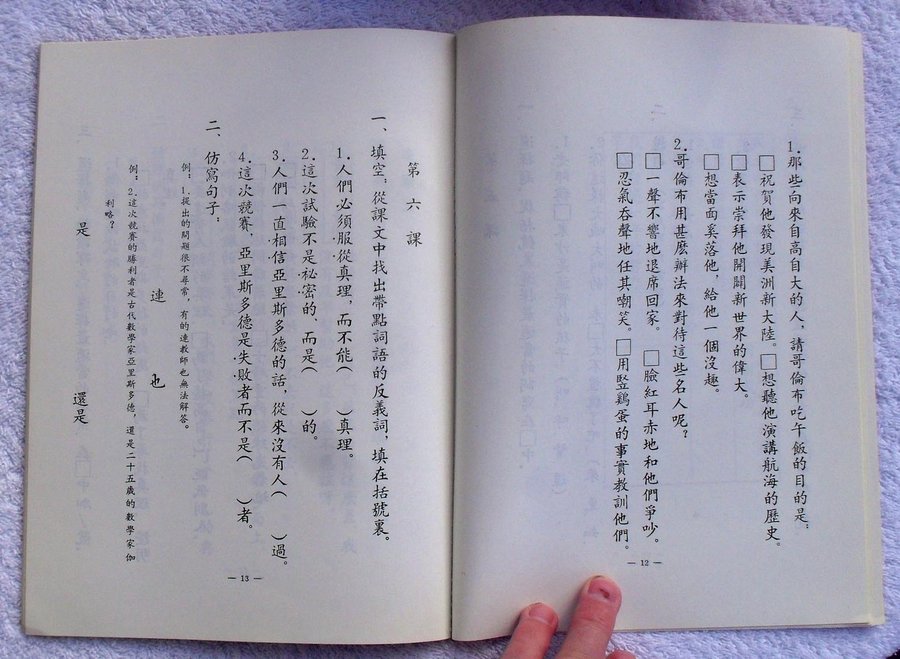 1.那些向來自高自大的人，請哥倫布吃午飯的目的是：
□祝賀他發現美洲新大陸。□想聽他演講航海的歷史。
□表示崇拜他開闢新世界的偉大。
□想當面奚落他，給他一個沒趣。
2.哥倫布用甚麽辦法來對待這些名人呢？
□一聲不響地退席回家。□臉紅耳赤地和他們爭吵。
□忍氣吞聲地任其嘲笑。□用豎鷄蛋的事實教訓他們。
— 12 —
第六課
一、填空：從課文中找出帶點詞語的反義詞，填在括號裏。
1.人們必須服從真理，而不能（ ）真理。
2.這次試驗不是秘密的，而是（ ）的。
3.人們一直相信亞里斯多德的話，從來沒有人（ ）過。
4.這次競賽，亞里斯多德是失敗者而不是（ ）者。
二、仿寫句子：
例：1.提出的問題很不尋常，有的連教師也無法解答。
連 也
例：2.這次競賽的勝利者是古代數學家亞里斯多德，還是二十五歲的數學家伽
利略？
是 還是
— 13 —